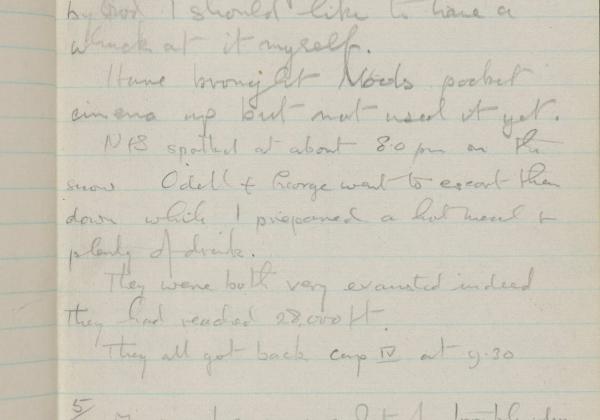 by God I should like to have a
whack at it myself.
Have brought Noels pocket
cinema up but not used it yet.
N+S spotted at about 8.0 pm on the
snow Odell + George went to escort them
down while I prepared a hot meal +
plenty of drink.
They were both very exausted indeed
They had reached 28,000 ft.
They all got back camp IV at 9.30
5/